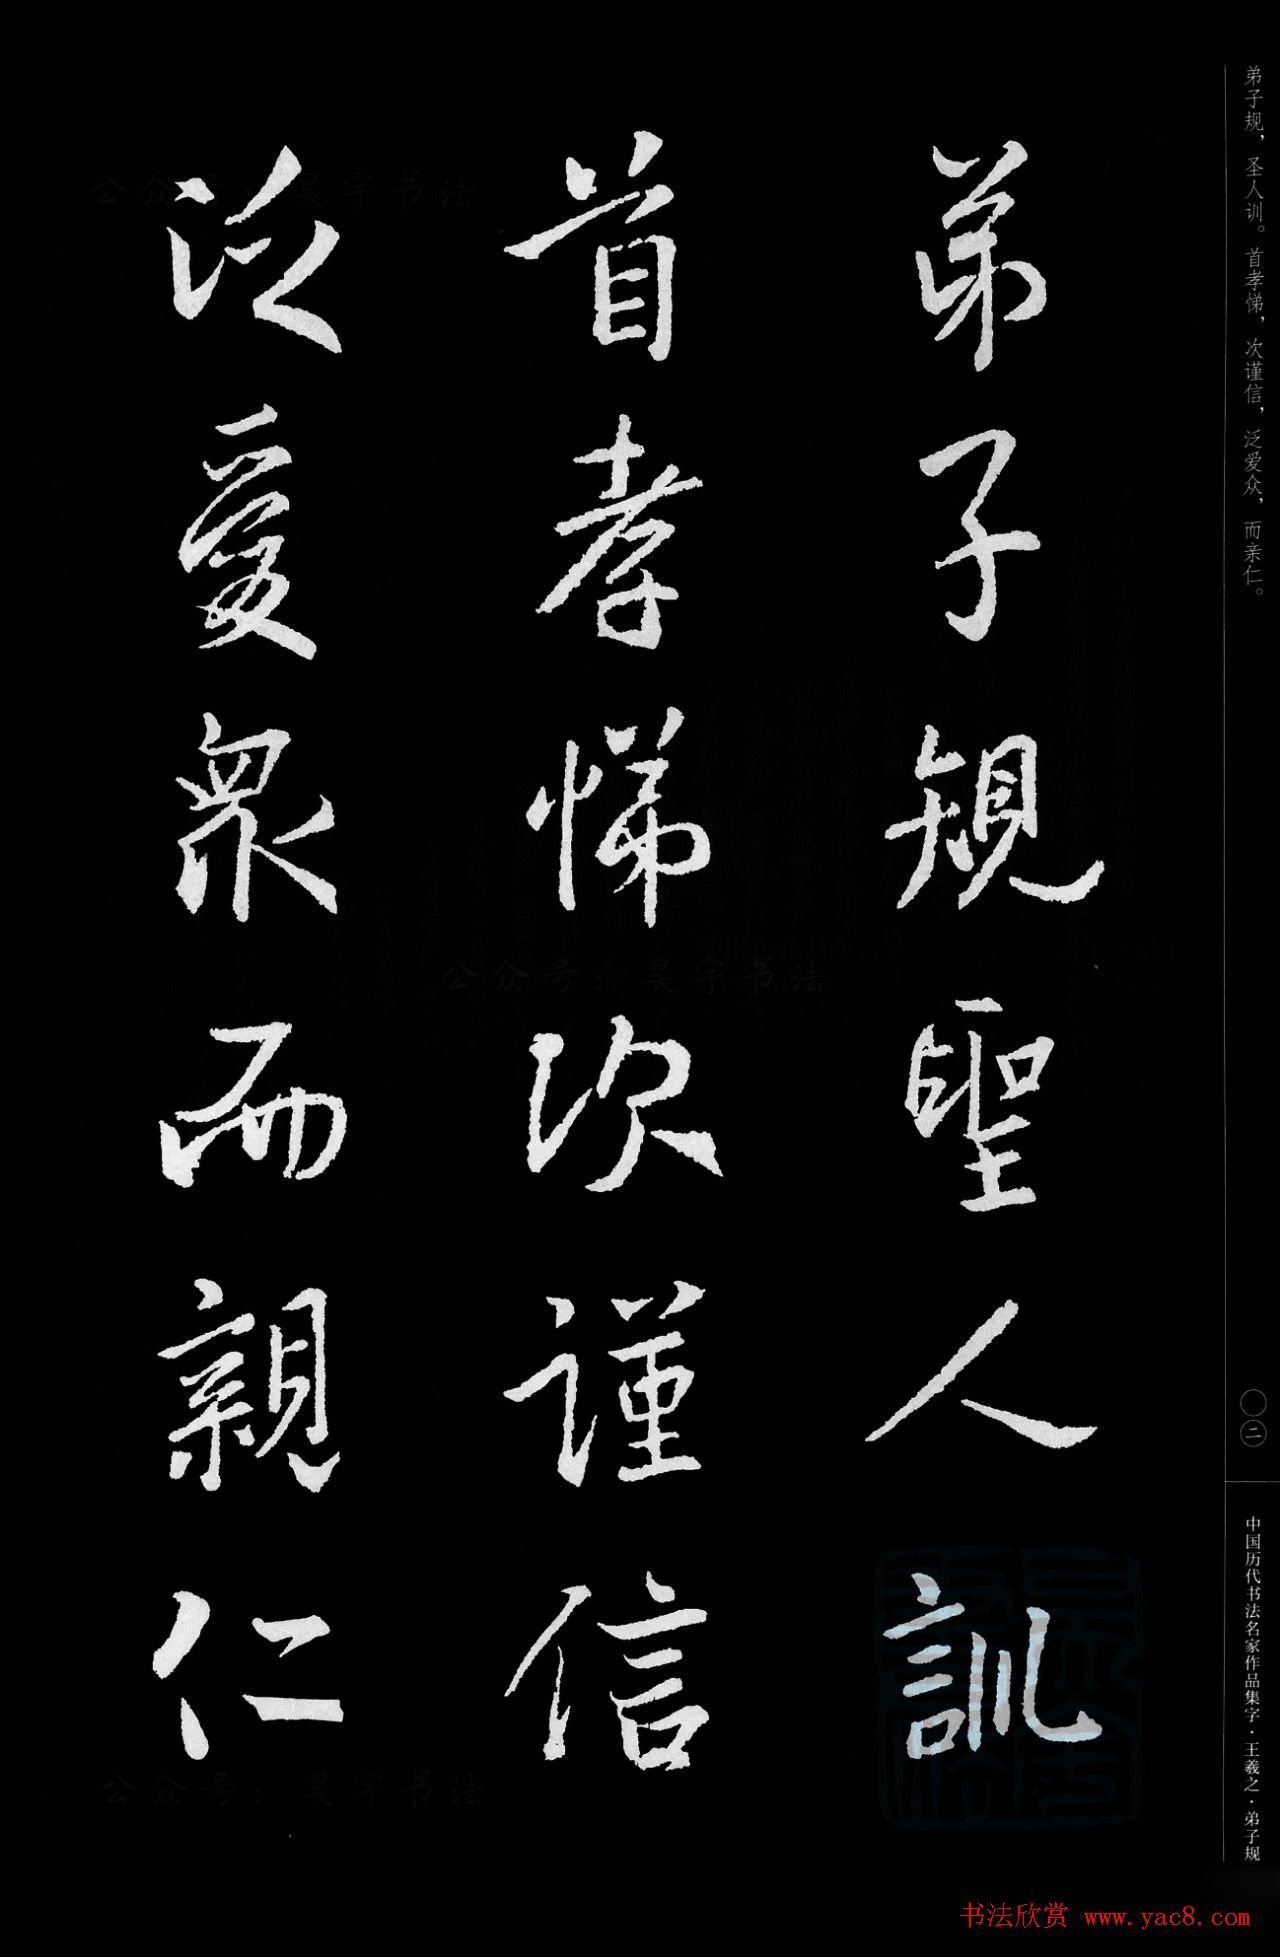 弟子规，圣人训。首孝悌，次谨信，泛爱众，而亲仁。
弟子規聖人訓
首孝悌次謹信
泛愛眾而親仁
〇二
中国历代书法名家作品集字·王羲之·弟子规
公众号：昊宇书法
公众号：昊宇书法
公众号：昊宇书法
书法欣赏 www.yac8.com